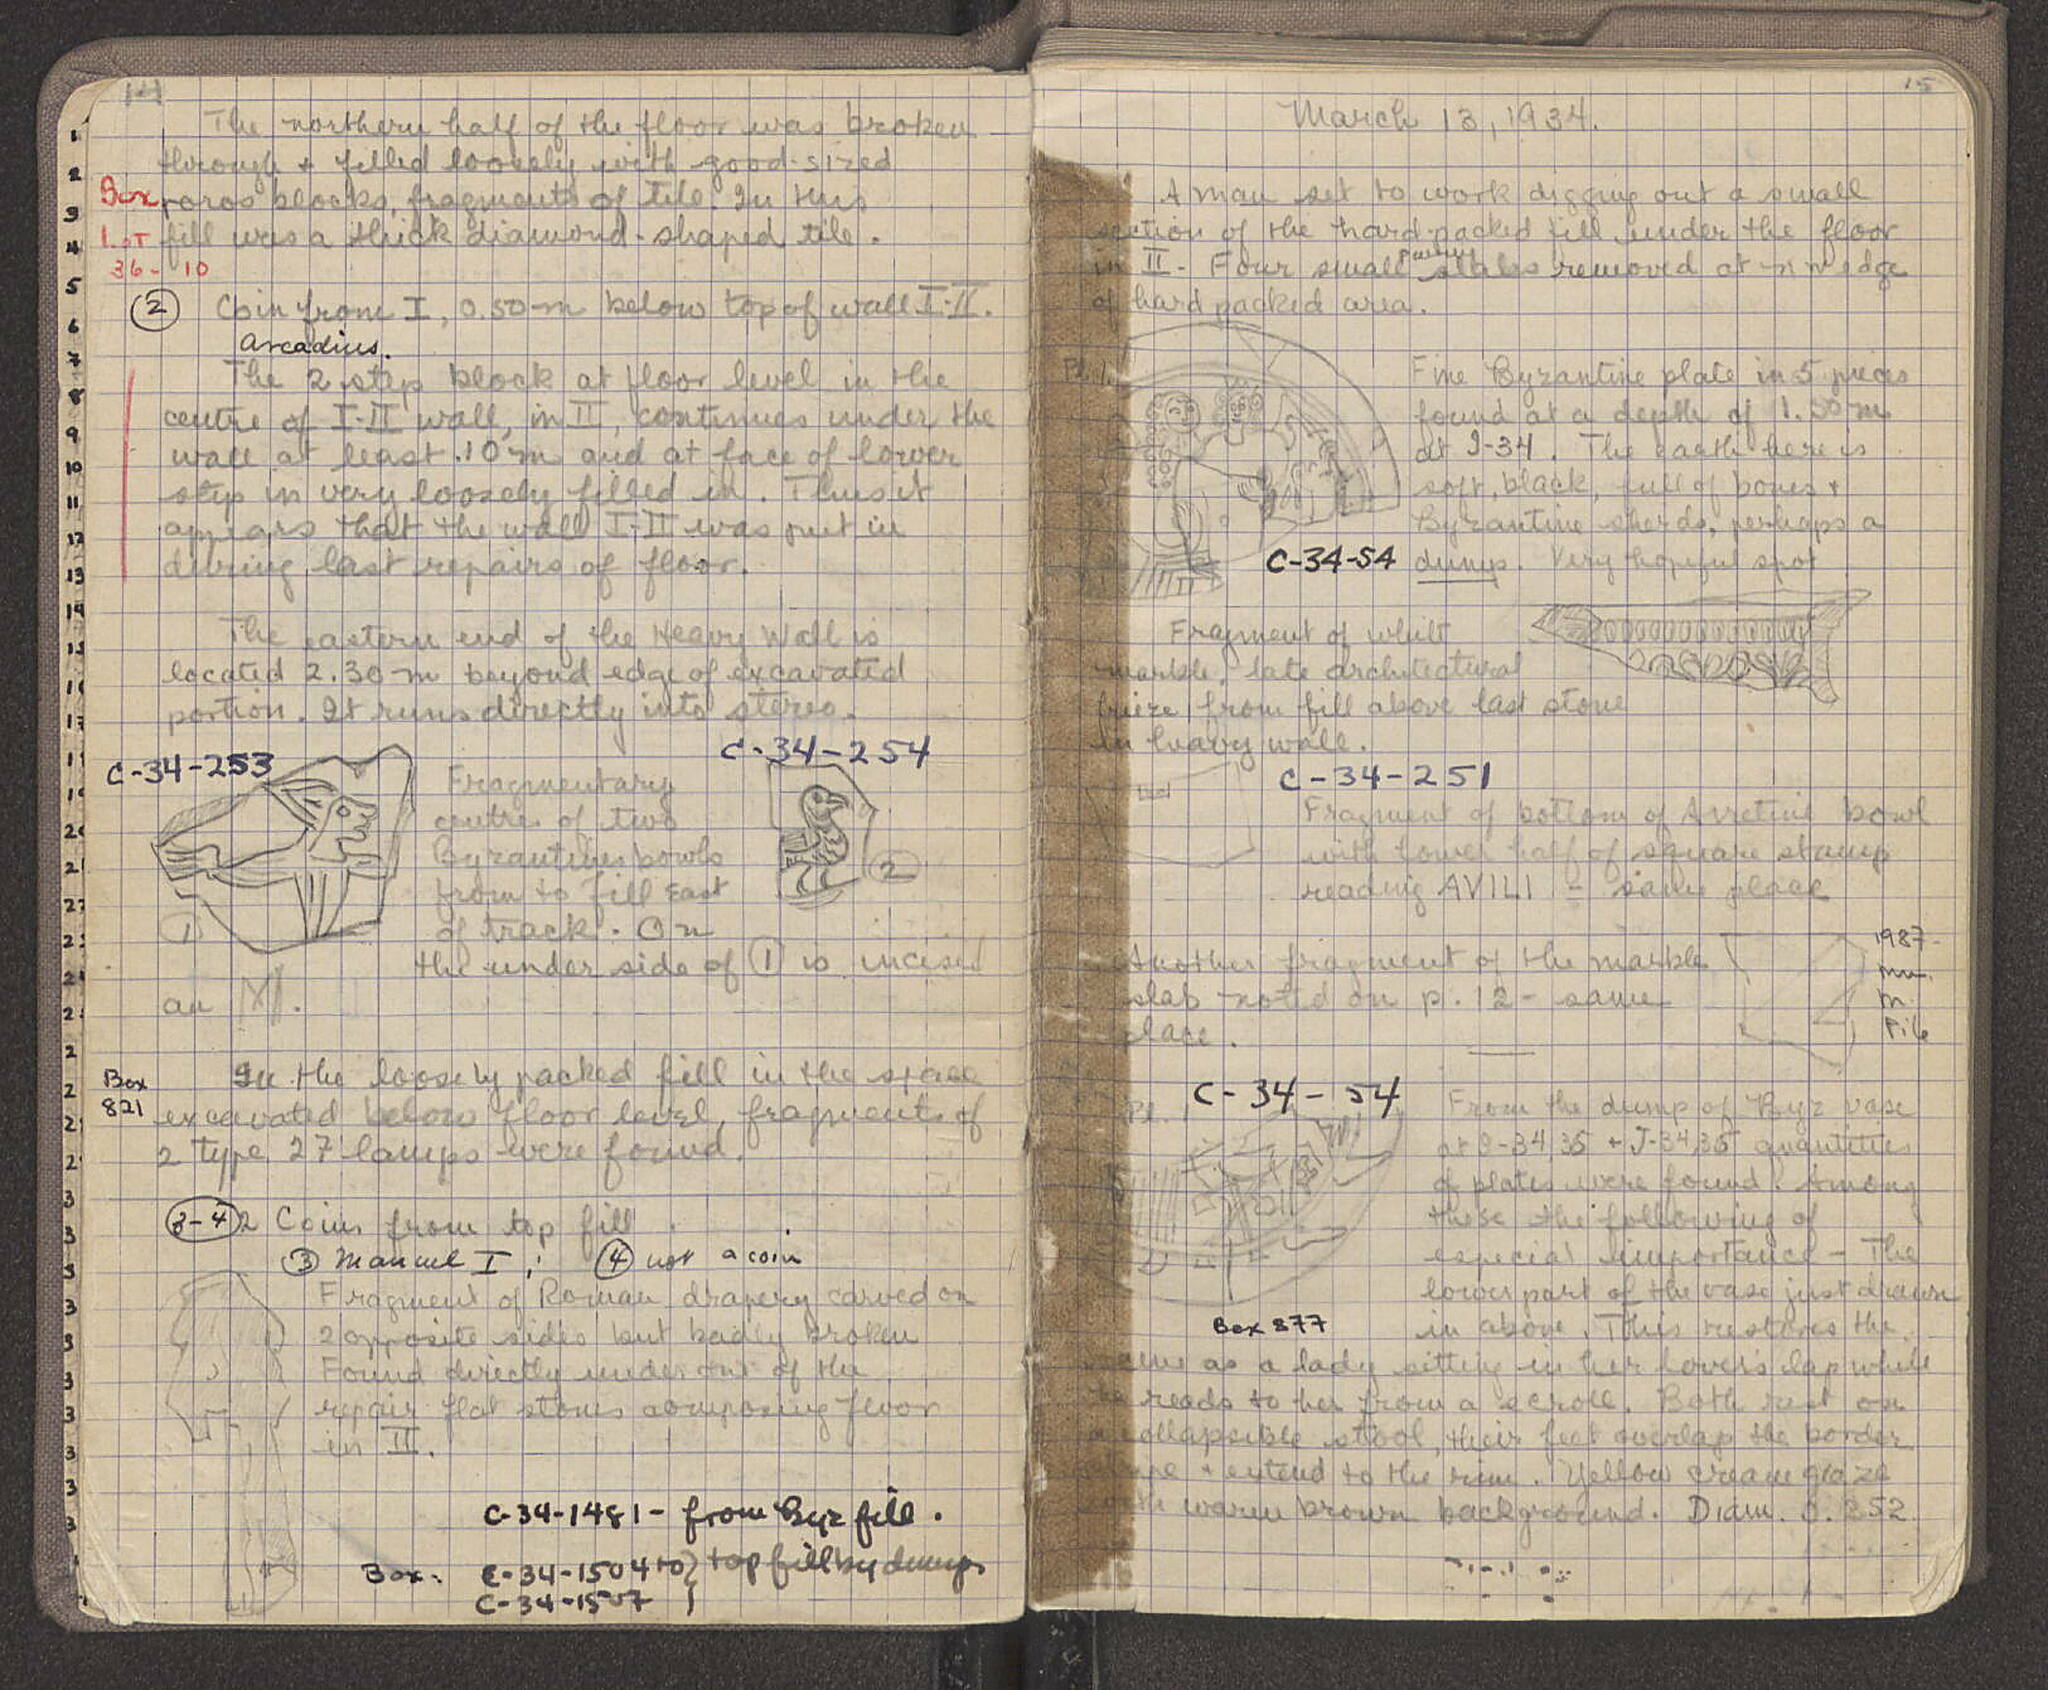 14
The northern half of the floor was broken
through + filled loosely with good-sized
Box poros blocks, fragments of tile. In this
Lot fill was a thick diamond-shaped tile.
36-10
② Coin from I, 0.50 m below top of wall I-II.
Arcadius.
The 2 step block at floor level in the
centre of I-II wall, in II, continues under the
wall at least .10 m and at face of lower
step in very loosely filled in. Thus it
appears that the wall I-II was put in
during last repairs of floor.
The eastern end of the Heavy Wall is
located 2.30 m beyond edge of excavated
portion. It runs directly into stereo.
C-34-253
C-34-254
Fragmentary
centre of two
Byzantine bowls
from to fill East
of track. On
the under side of ① is incised
an
①
②
Box
821
In the loosely packed fill in the space
excavated below floor level, fragments of
2 type 27 lamps were found.
3-4 2 Coins from top fill
③ Manuel I; ④ not a coin
Fragment of Roman drapery carved on
2 opposite sides but badly broken
Found directly under one of the
repair flat stones composing floor
in II.
C-34-1481 - from Byz fill.
Box. C-34-1504 to } top fill by dump
C-34-1507
15
March 13, 1934.
A man set to work digging out a small
section of the hard-packed fill under the floor
in II - Four small slabs removed at n w edge
of hard packed area.
Fine Byzantine plate in 5 pieces
found at a depth of 1.50 m
at I-34. The earth here is
soft, black, full of bones +
Byzantine sherds, perhaps a
dump. Very hopeful spot
C-34-54
Fragment of white
marble, late architectural
frieze from fill above last stone
in heavy wall.
C-34-251
Fragment of bottom of Arretine bowl
with lower half of square stamp
reading AVILI - same place
Another fragment of the marble
slab noted on p. 12 - same
place.
1987
C-34-54
Pl.
From the dump of Byz vase
at I-34,35 + J-34,35 quantities
of plates were found. Among
these the following of
especial importance - The
lower part of the vase just drawn
in above. This restores the
Box 877
scene as a lady sitting in her lover's lap while
he reads to her from a scroll. Both rest on
a collapsible stool, their feet overlap the border
+ extend to the rim. Yellow cream glaze
with warm brown background. Diam. 0.252